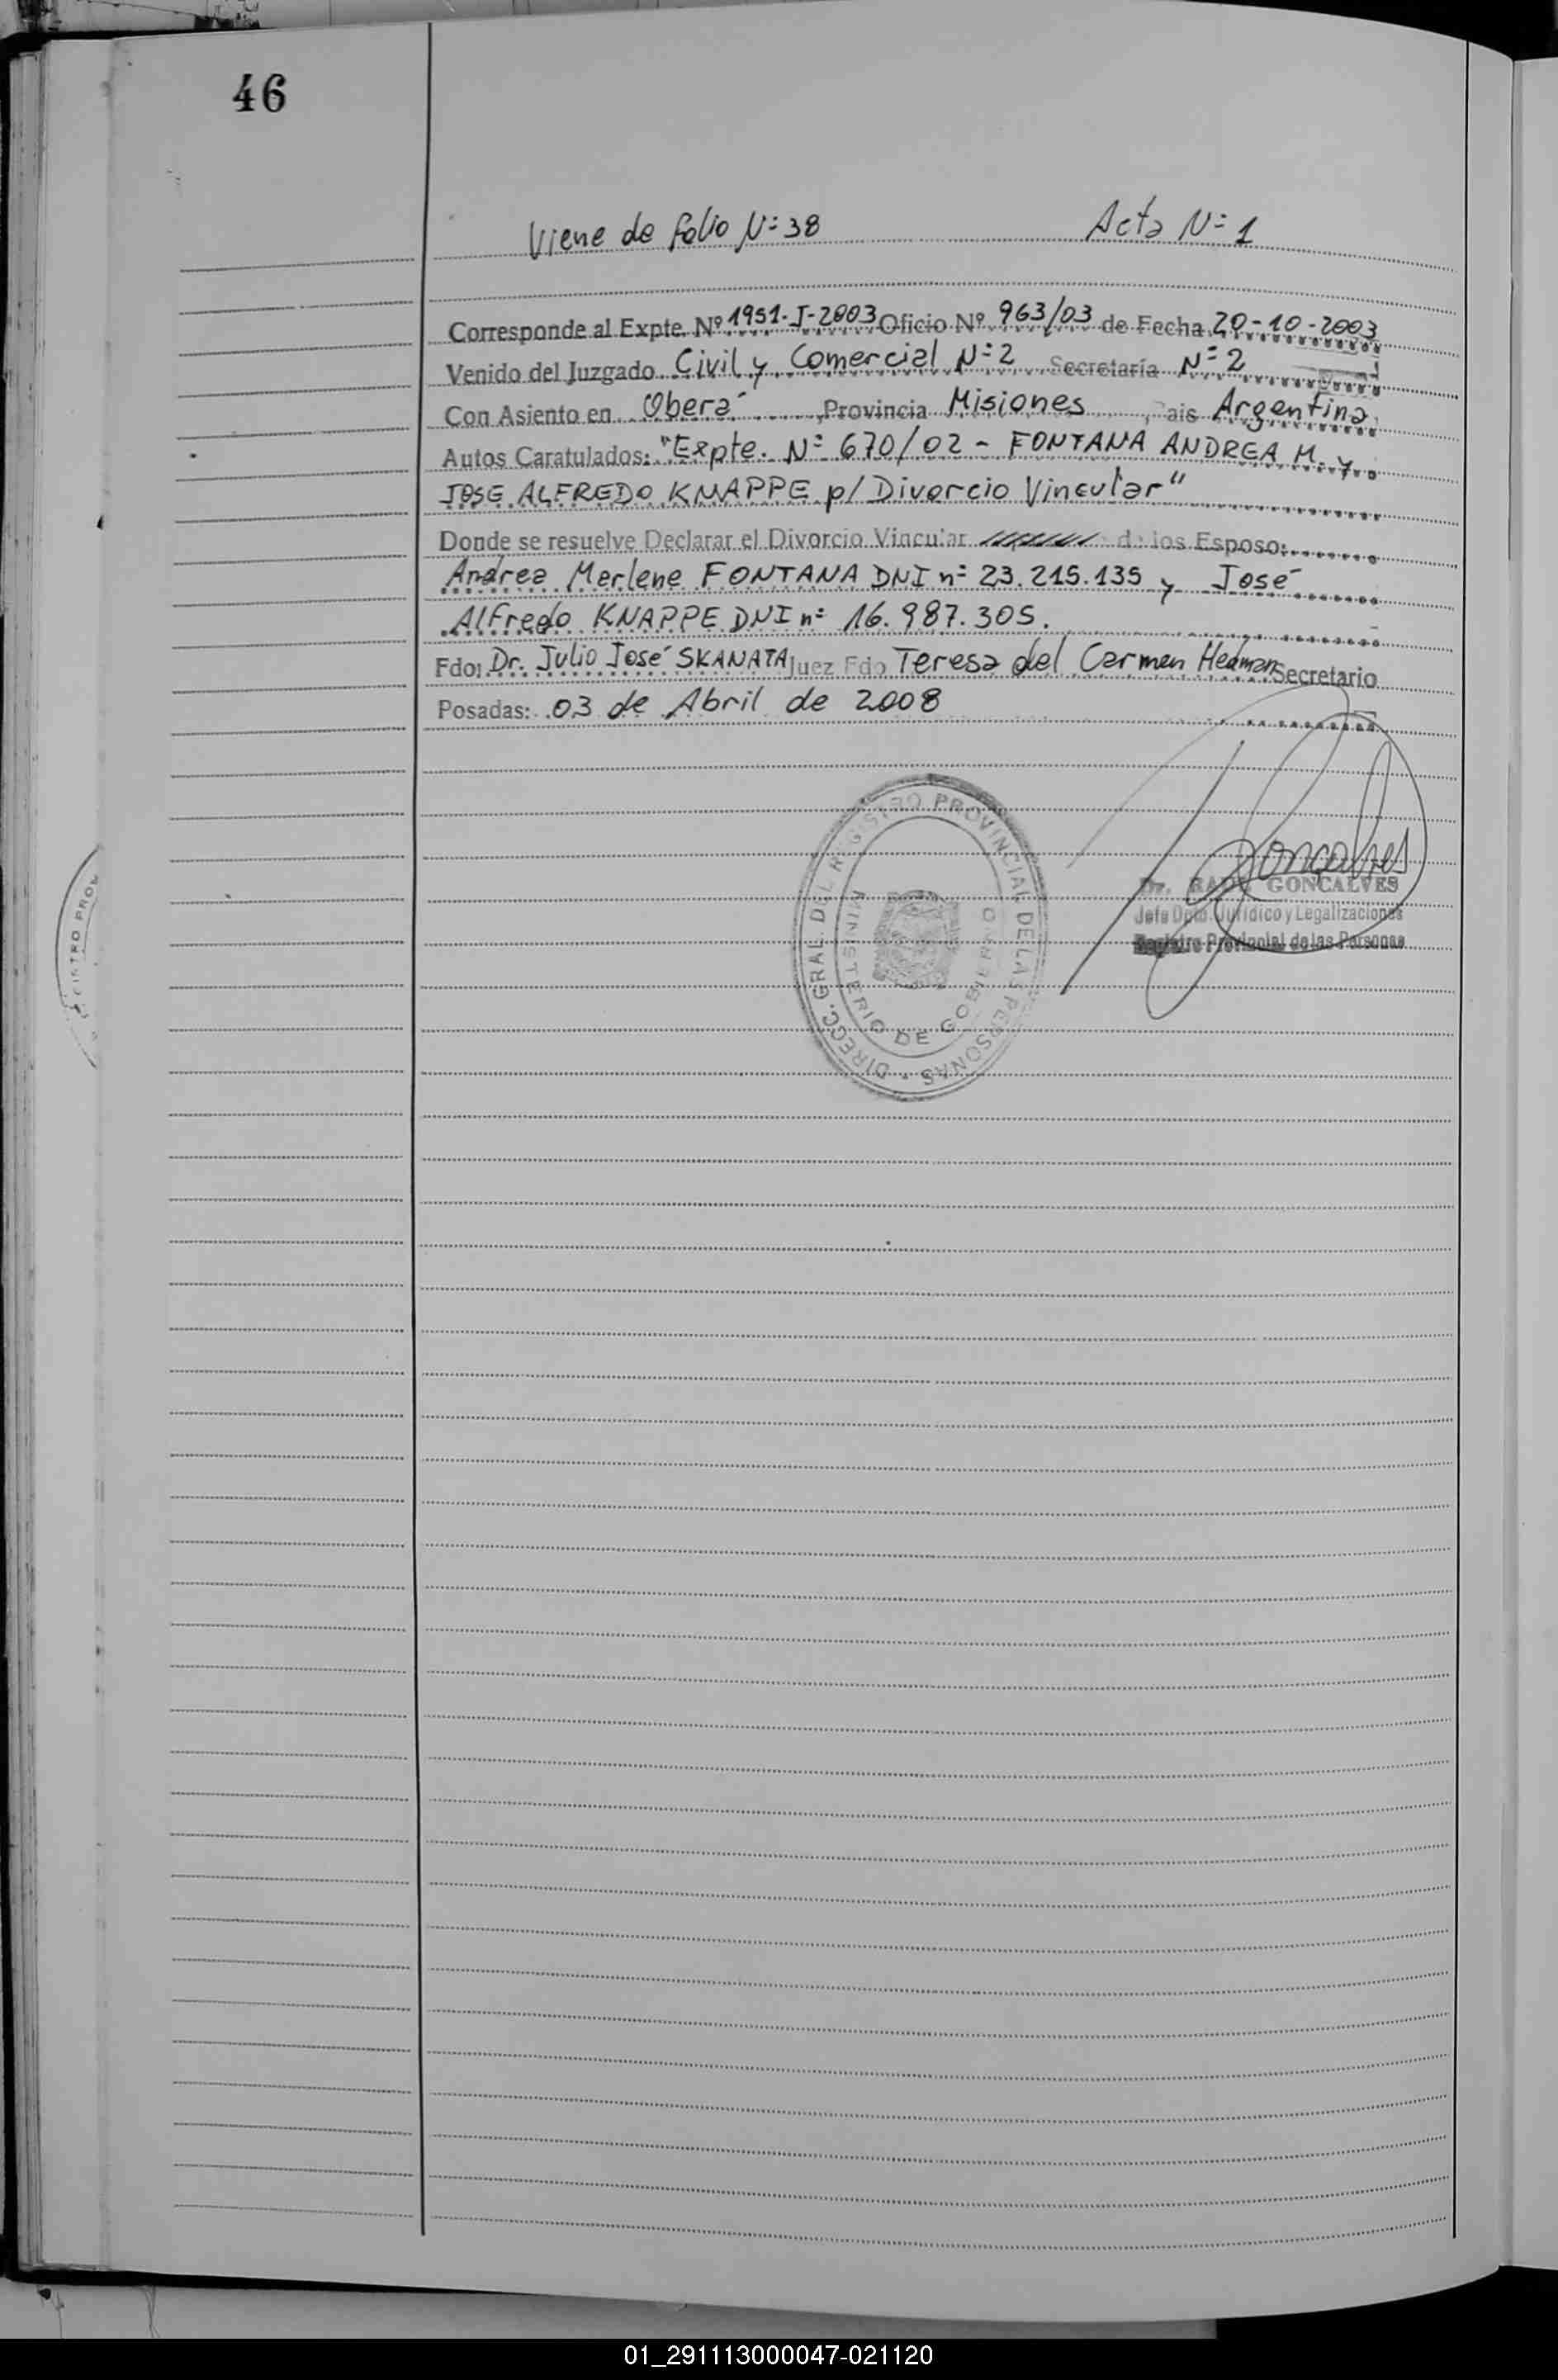 46
Viene de folio Nº 38 Acta Nº 1
Corresponde al Expte. Nº 1951-J-2003 Oficio Nº 963/03 de Fecha 20-10-2003
Venido del Juzgado Civil y Comercial Nº 2 Secretaría Nº 2
Con Asiento en Oberá, Provincia Misiones, Pais Argentina
Autos Caratulados: "Expte. Nº 670/02 - FONTANA ANDREA M. y
JOSE ALFREDO KNAPPE p/ Divorcio Vincular"
Donde se resuelve Declarar el Divorcio Vincular de los Esposo:
Andrea Marlene FONTANA DNI nº 23.215.135 y José
Alfredo KNAPPE DNI nº 16.987.305.
Fdo: Dr. Julio José SKANATA Juez Fdo Teresa del Carmen Hedman Secretario
Posadas: 03 de Abril de 2008
DIRECC. GRAL. DEL REGISTRO PROVINCIAL DE LAS PERSONAS
MINISTERIO DE GOBIERNO
Goncalves
Dr. RAUL GONCALVES
Jefe Dpto. Jurídico y Legalizaciones
Registro Provincial de las Personas
01_291113000047-021120